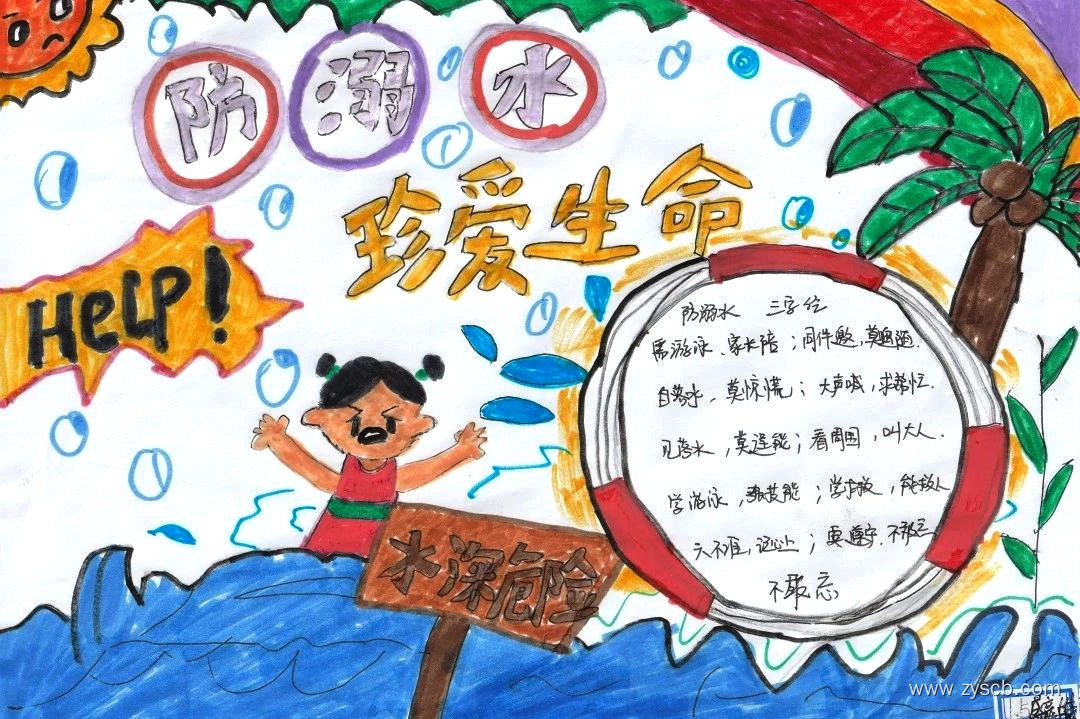 防溺水
珍爱生命
HeLP!
防溺水 三字
游泳、家长陪；同伴邀，莫
自落水，莫惊慌；大声喊，求帮忙.
见落水，莫逞能；看周围，叫大人.
学游泳，技能；学救，能救人
六不准，记心上；要遵守.不
不敢忘
水深危险
www.zyscb.com